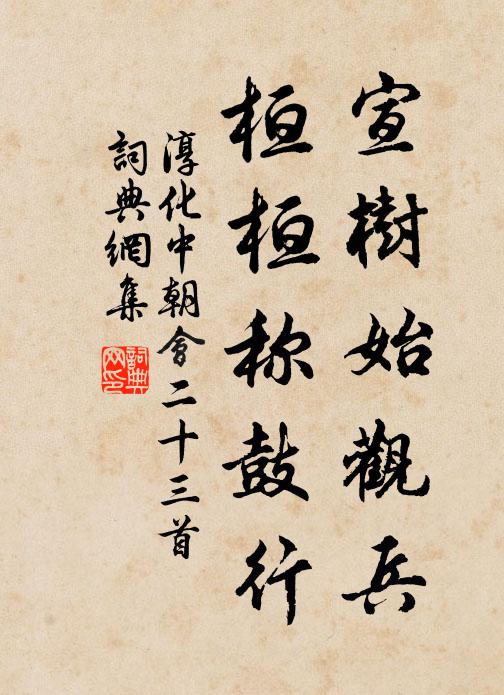 宣樹始觀兵
桓桓称鼓行
淳化中朝會二十三首
詞典網集
詞典网印